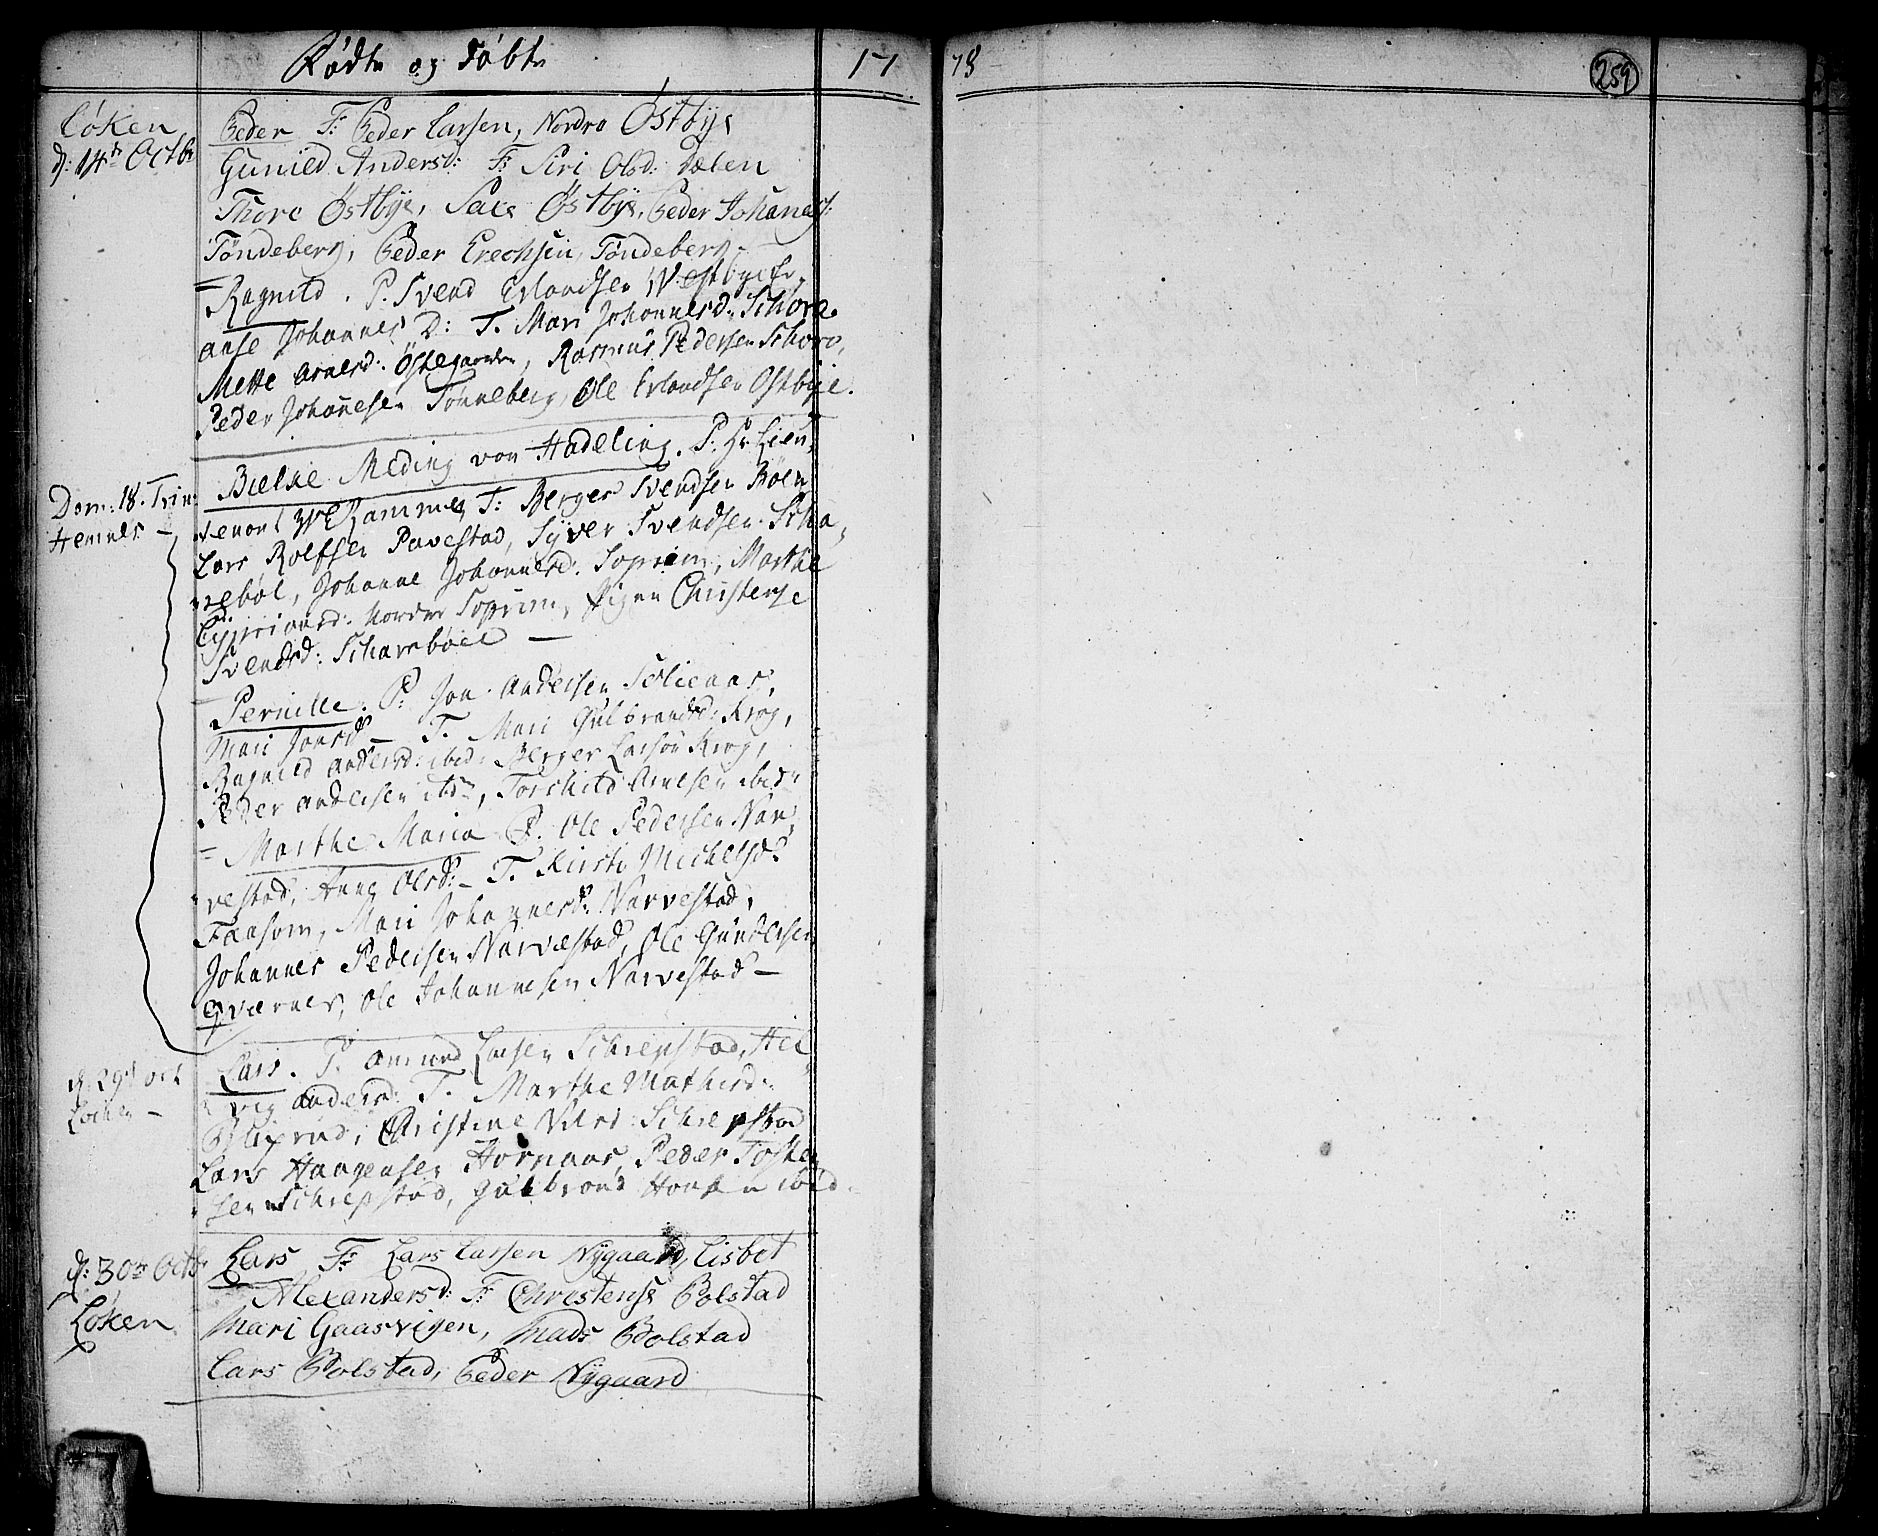 Fødte og Døbte 17 78 259
Løken Peder F: Peder Larsen, Nordra Østbye
d: 14de Octbr Gunild Andersd: F: Siri Olsd: Dælen
Thore Østbye, Sacs Østbye, Peder Johanes:
Tøndeberg, Peder Erechsen, Tøndeberg -
- Ragnild. P. Svend Erlandsen Westbye Er,
anse Johannes D: T. Mari Johannesd: Schora
Mette Arnesd: Østegaarden, Rasmus Pedersen Schoro,
Peder Johañesen Tønneberg, Ole Erlandsen Østbye.
Bielke Meding von Hadeling. P. Hr Lieu,
Dom. 18. Trin: tenant W Ramme, T: Berger Svendsen Bøen
Hemnes - Lars Rolfsen Pavestad, Syver Svendsen Scha,
vebøl, Johanne Johannesd: Soprim, Marthe
Cypriansd: Nordre Soprim, Pigen Christense
Svendsd: Scharebøel -
- Pernille. P: Jon Andersen Solienas,
Mari Jonsd - T. Mari Gulbrandsd: Krog,
Ragnild Andersd: ibid: Berger Larsøn Krog,
Peder Andersen ibdm, Torchild Arnesen ibidm
- Marthe Maria P. Ole Pedersen Nar,
vestad, Anne Olsd: - T. Kirsti Michelsd:
Faasom, Mari Johannesd: Narvestad,
Johannes Pedersen Narvestad, Ole Gundersen
Qværnes, Ole Johannesen Narvestad -
d. 29d oct Lars. P. Amund Larsen Schrepstad, Hel
Løchen - vig Andersd: T. Marthe Mathisd:
Blixrud, Christine Nilsd: Schrepstad
Lars Haagensen Hornaas, Peder Toste,
sen Schrepstad, Gulbrand Hansen ibid.
d: 30te Octbr Lars F: Lars Larsen Nygaard, Lisbet
Alexandersd: F: Christense Bolstad
Løken Mari Gaasvigen, Mads Bolstad
Lars Bolstad, Peder Nygaard